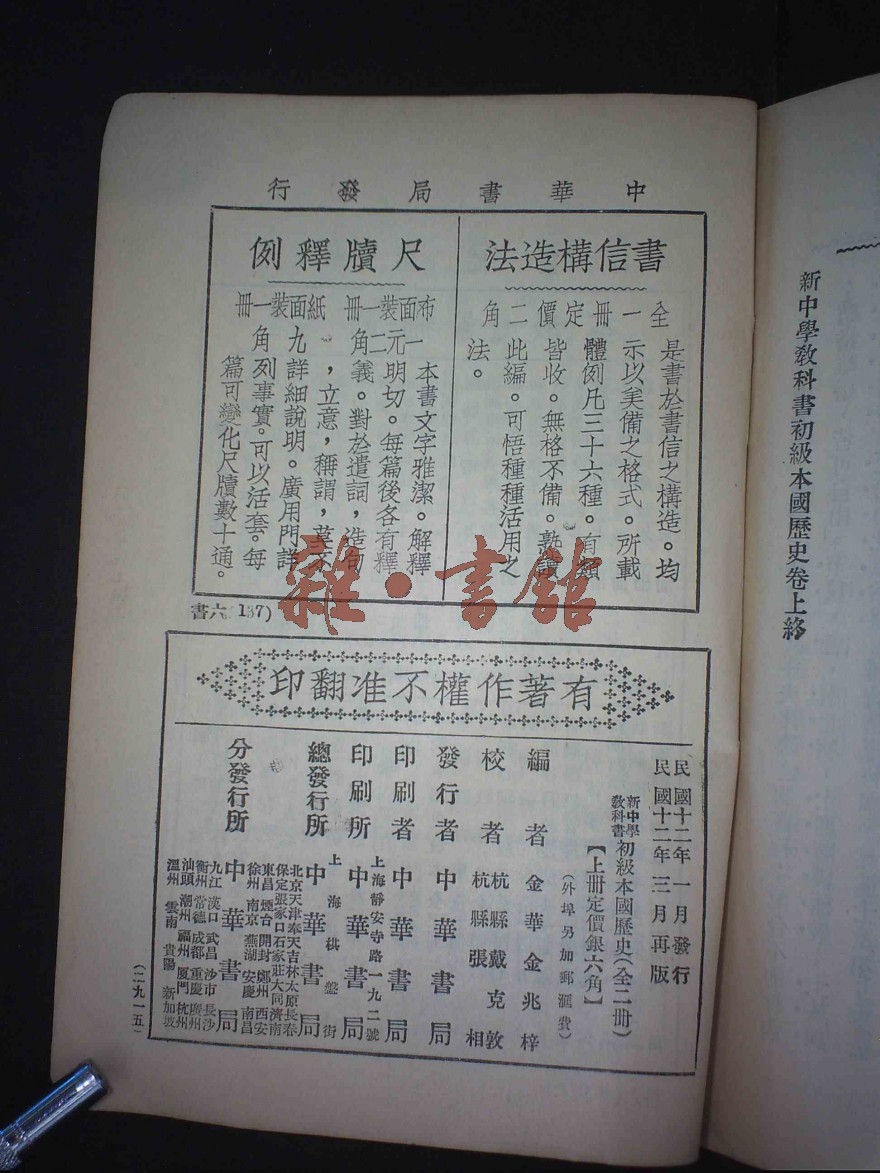 新中學教科書初級本國歷史卷上終
中華書局發行
書信構造法
全一册定價二角
是書於書信之構造。均
示以美備之格式。所載
體例凡三十六種。有類
皆收。無格不備。熟讀
此編。可悟種種活用之
法。
尺牘釋例
布面裝一册一元二角
紙面裝一册九角
本書文字雅潔。解釋
明切。每篇後各有釋
義。對於遣詞，造句
，立意，稱謂，莫不
詳細說明。廣用門詳
列事實。可以活套。每
篇可變化尺牘數十通。
書六(137)
雜·書館
有著作權不准翻印
民國十二年一月發行
民國十二年三月再版
新中學教科書初級本國歷史(全二冊)
【上册定價銀六角】
(外埠另加郵滙費)
編者 金華金兆梓
校者 杭縣戴克敦
杭縣張相
發行者 中華書局
印刷者 中華書局
印刷所 上海靜安寺路一九二號 中華書局
總發行所 上海棋盤街 中華書局
分發行所 中華書局
北京天津奉天吉林太原長春
保定張家口石家莊大同濟南
東昌煙台開封鄭州西安
徐州南京蕪湖安慶南昌
九江漢口武昌沙市長沙
衡州常德成都重慶廣州
汕頭潮州福州厦門杭州
溫州雲南貴陽新加坡
(二九一五)